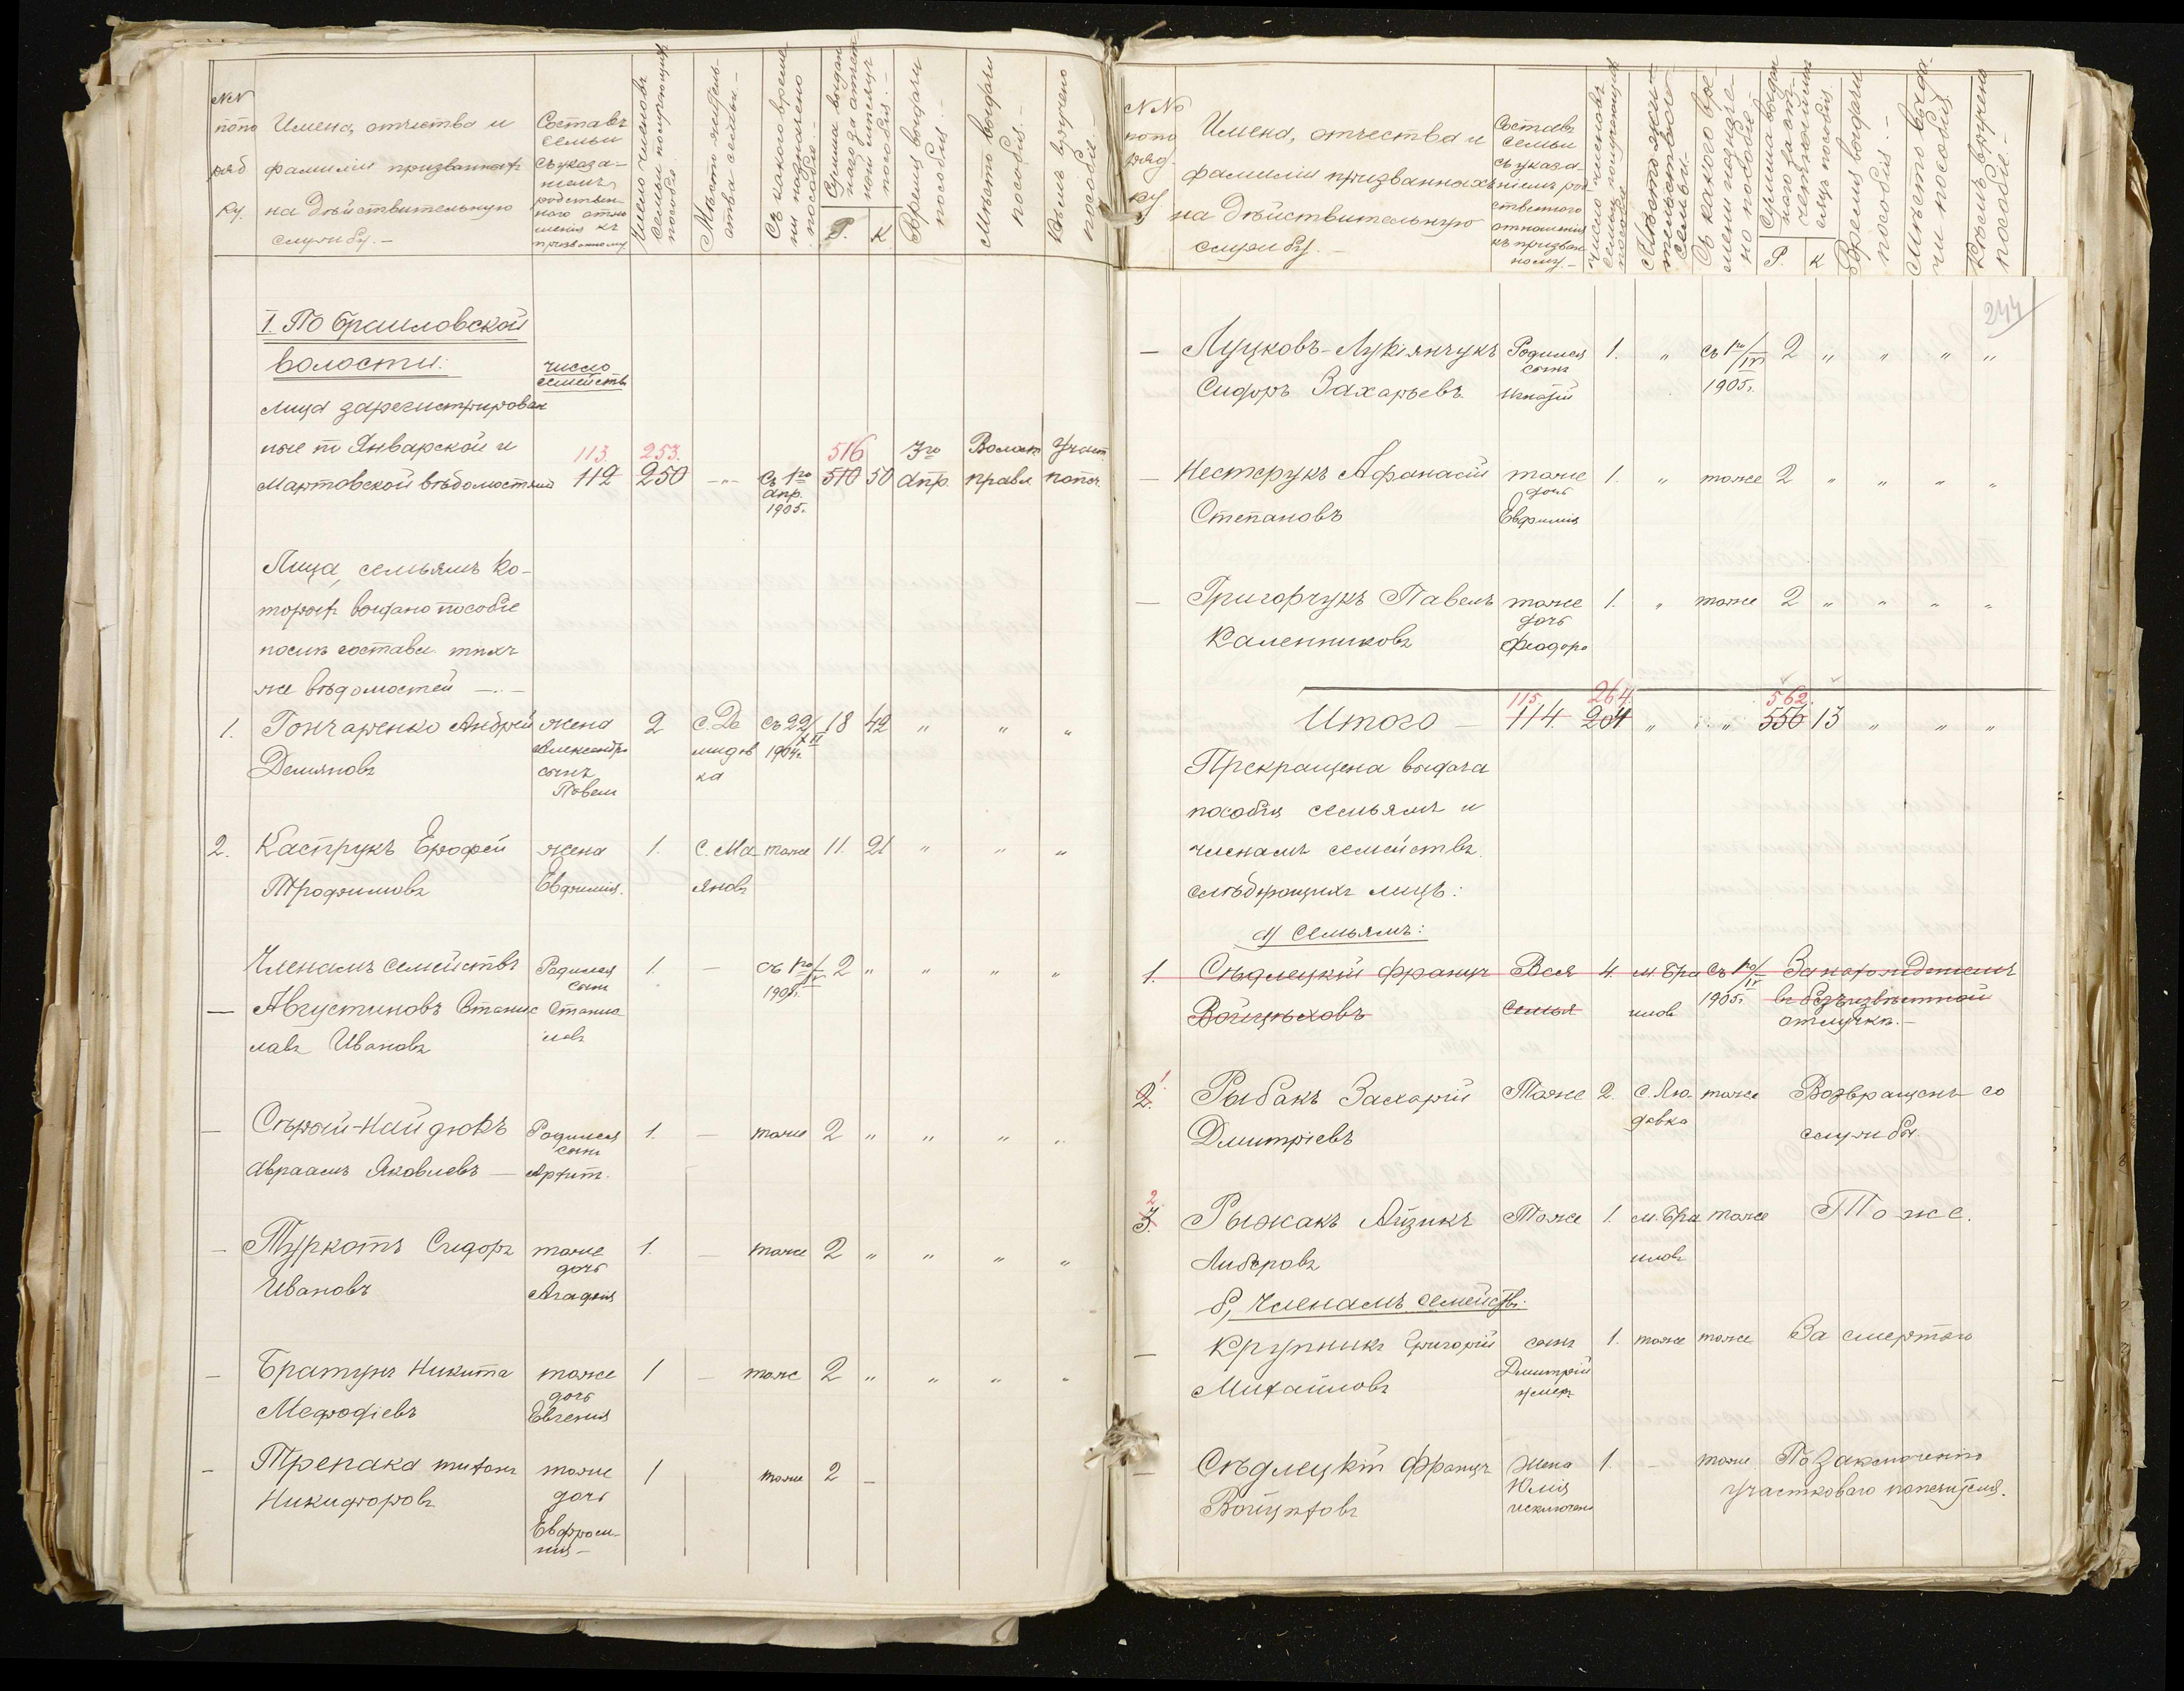 NN попо рядку.
Имена, отчества и фамилии призванныхъ на дѣйствительную службу. –
Составъ семьи съ указаніемъ родственнаго отношенія къ призванному
Число членовъ семьи получающихъ пособіе
Мѣсто жительства семьи. –
Съ какого времени назначено пособіе. –
Сумма выданнаго за отчетной мѣсяцъ пособія. –
Р. К
Время выдачи пособія. –
Мѣсто выдачи пособія. –
Кѣмъ вручено пособіе. –
I. По Браиловской
волости:
число семействъ
Лица зарегистрирован
ные по Январской и
113. 253. 516 3го Волост. Участ.
Мартовской вѣдомостямъ 112 250 –"– Съ 1го 510 50 Апр. правл. попеч.
Апр.
1905.
Лица, семьямъ ко-
торыхъ выдано пособіе
послѣ составл. тѣхъ
же вѣдомостей –.–
1. Гончаренко Андрей жена 2 с. Де съ 22/XII 18 42 " " "
Александра мидов 1904г.
Демяновъ сынъ ка
Павелъ
2. Каструкъ Ерофей жена 1. С. Ма тоже 11. 21 " " "
Трофимовъ Евфимія. яновъ
Членамъ семействъ Родился 1. – съ 1го/IV 2 " " " "
сынъ 1905г.
– Августиновъ Станис Станис
лавъ Ивановъ лавъ
– Сѣрый-Найдюкъ Родился 1. – тоже 2 " " " "
сынъ
Авраамъ Яковлевъ –
– Туркотъ Сидоръ тоже 1. – тоже 2 " " " "
дочь
Ивановъ Агафія
– Братунъ Никита тоже 1 – тоже 2 " " " "
дочь
Мефодіевъ Евгенія
– Трепака тоже 1 тоже 2 –
Никифоровъ дочь
Евфроси-
нія –
NNо попо ряд ку
Имена, отчества и фамиліи призванныхъ на дѣйствительную службу. –
Составъ семьи съ указаніемъ родственнаго отношенія къ призванному. –
Число членовъ семьи получающихъ пособіе
Мѣсто жительства семьи.
Съ какого времени назначено пособіе –
Сумма выданнаго за отчетной мѣсяцъ пособія
Р. К
Время выдачи пособія. –
Мѣсто выдачи пособія.
Кѣмъ вручено пособіе. –
244
– Луцковъ-Лукіянчукъ Родился 1. " съ 1го/IV 2 " " " "
сынъ 1905г.
Сидоръ Захарьевъ
– Нестерукъ Афанасій тоже 1. " тоже 2 " " " "
дочь
Степановъ Евфимія
– Григорчукъ Павелъ тоже 1. " тоже 2 " " " "
дочь
Каленниковъ Феодора
115. 264. 562.
Итого – 114. 261 " " 556 13 " " "
Прекращена выдача
пособія семьямъ и
членамъ семействъ
слѣдующихъ лицъ:
а) Семьямъ:
1. Сѣдлецкій Францъ Вся 4 м. Бра съ 1го/IV За нахожденіемъ
Войцѣховъ семья иловъ 1905г. въ безъизвѣстной
отлучкѣ. –
1.
2. Рыбакъ Захарій Тоже 2. С. Лю тоже Возвращенъ со
Дмитріевъ давка службы.
2
3. Рыжакъ Айзикъ Тоже 1. м. Бра тоже Тоже.
Либеровъ иловъ
б, Членамъ семействъ:
– Крупникъ Григорій сынъ 1. тоже тоже За смертью
Дмитрій
Михайловъ умеръ
– Сѣдлецкій Францъ Жена 1. – тоже По заключенію
Юлія участковаго попечителя.
Войцѣховъ исключена